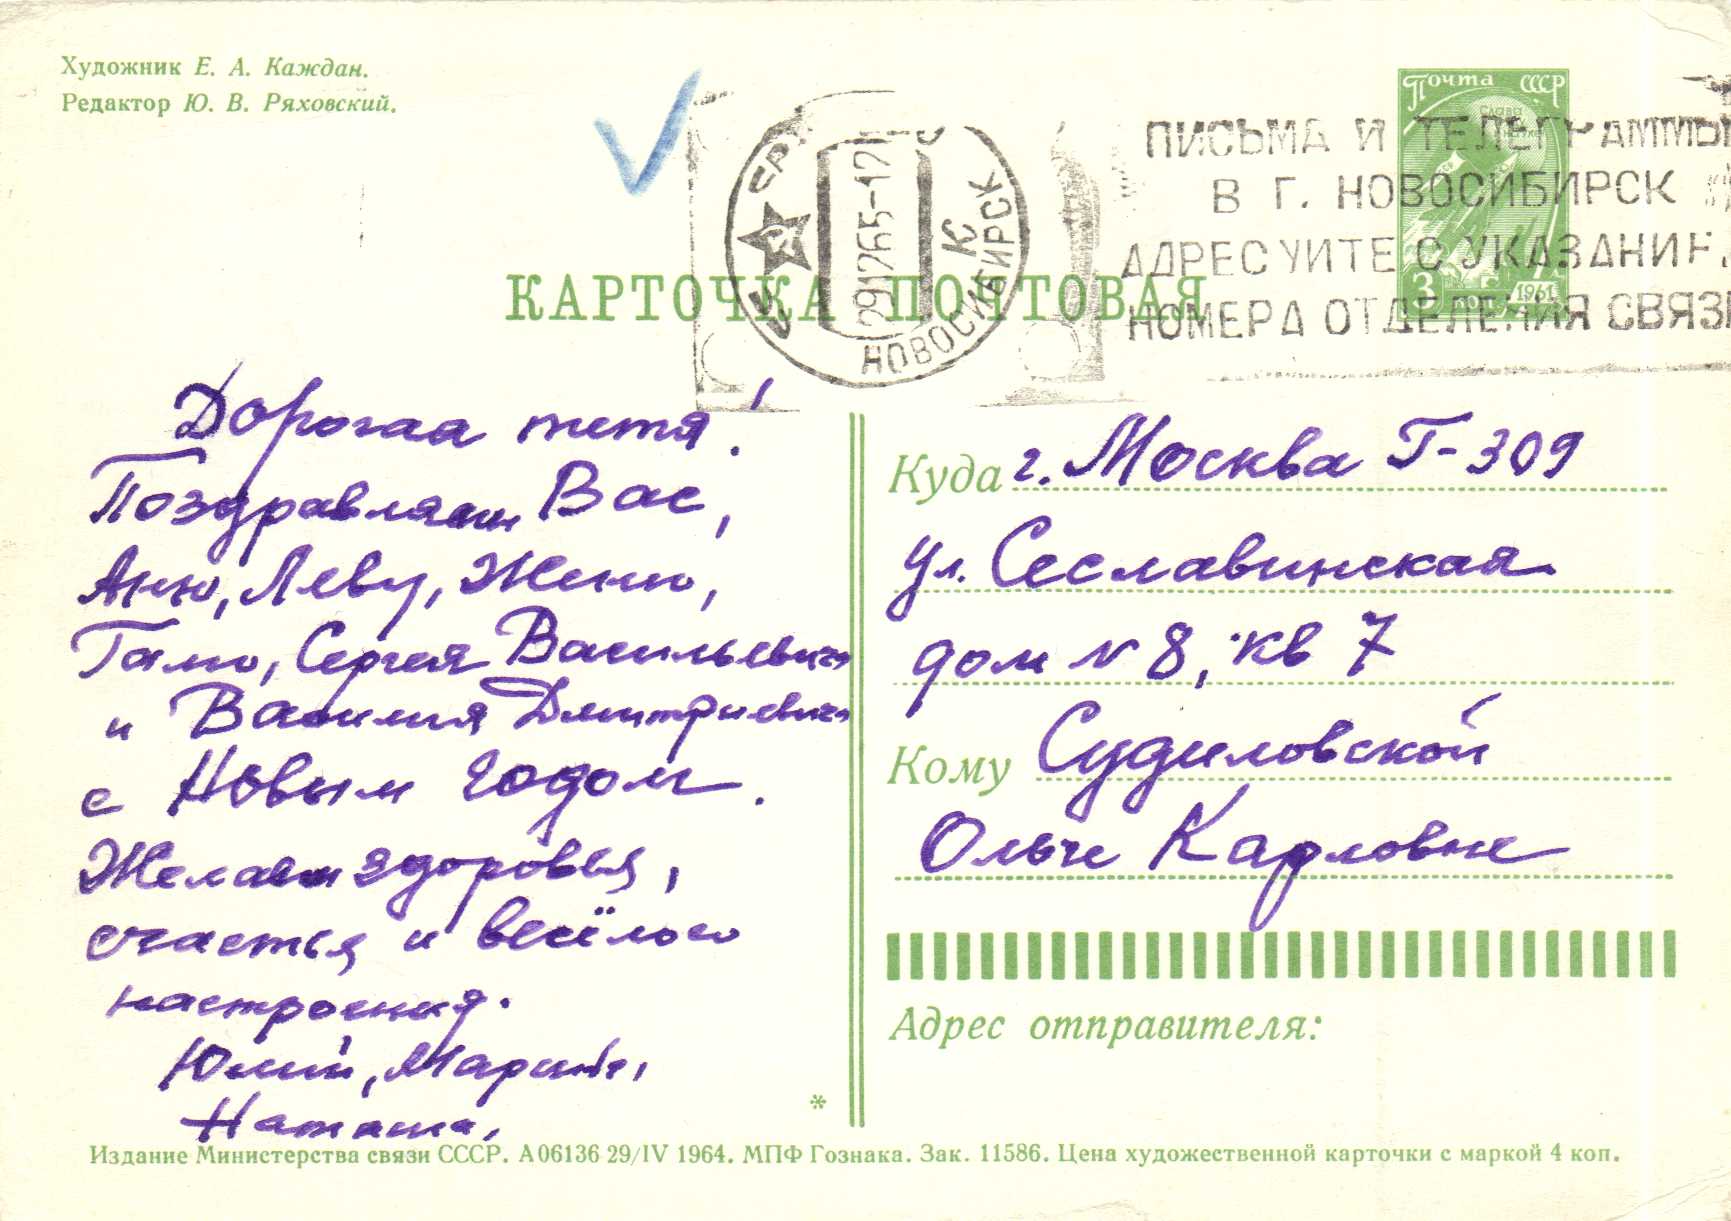 Художник Е. А. Каждан.
Редактор Ю. В. Ряховский.
Почта СССР
3 коп 1961
СССР
29 12 65-17
НОВОСИБИРСК
К
ПИСЬМА И ТЕЛЕГРАММЫ
В Г. НОВОСИБИРСК
АДРЕСУЙТЕ С УКАЗАНИЕ
НОМЕРА ОТДЕЛЕНИЯ СВЯЗИ
КАРТОЧКА ПОЧТОВАЯ
Дорогая тетя!
Поздравляем Вас,
Аню, Леву, Женю,
Галю, Сергея Васильевича
и Василия Дмитриевича
с Новым годом.
Желаем здоровья,
счастья и весёлого
настроения.
Юлий, Мария,
Наташа.
Куда г. Москва Г-309
ул. Сеславинская
дом № 8, кв 7
Кому Судиловской
Ольге Карловне
Адрес отправителя:
*
Издание Министерства связи СССР. А 06136 29/IV 1964. МПФ Гознака. Зак. 11586. Цена художественной карточки с маркой 4 коп.